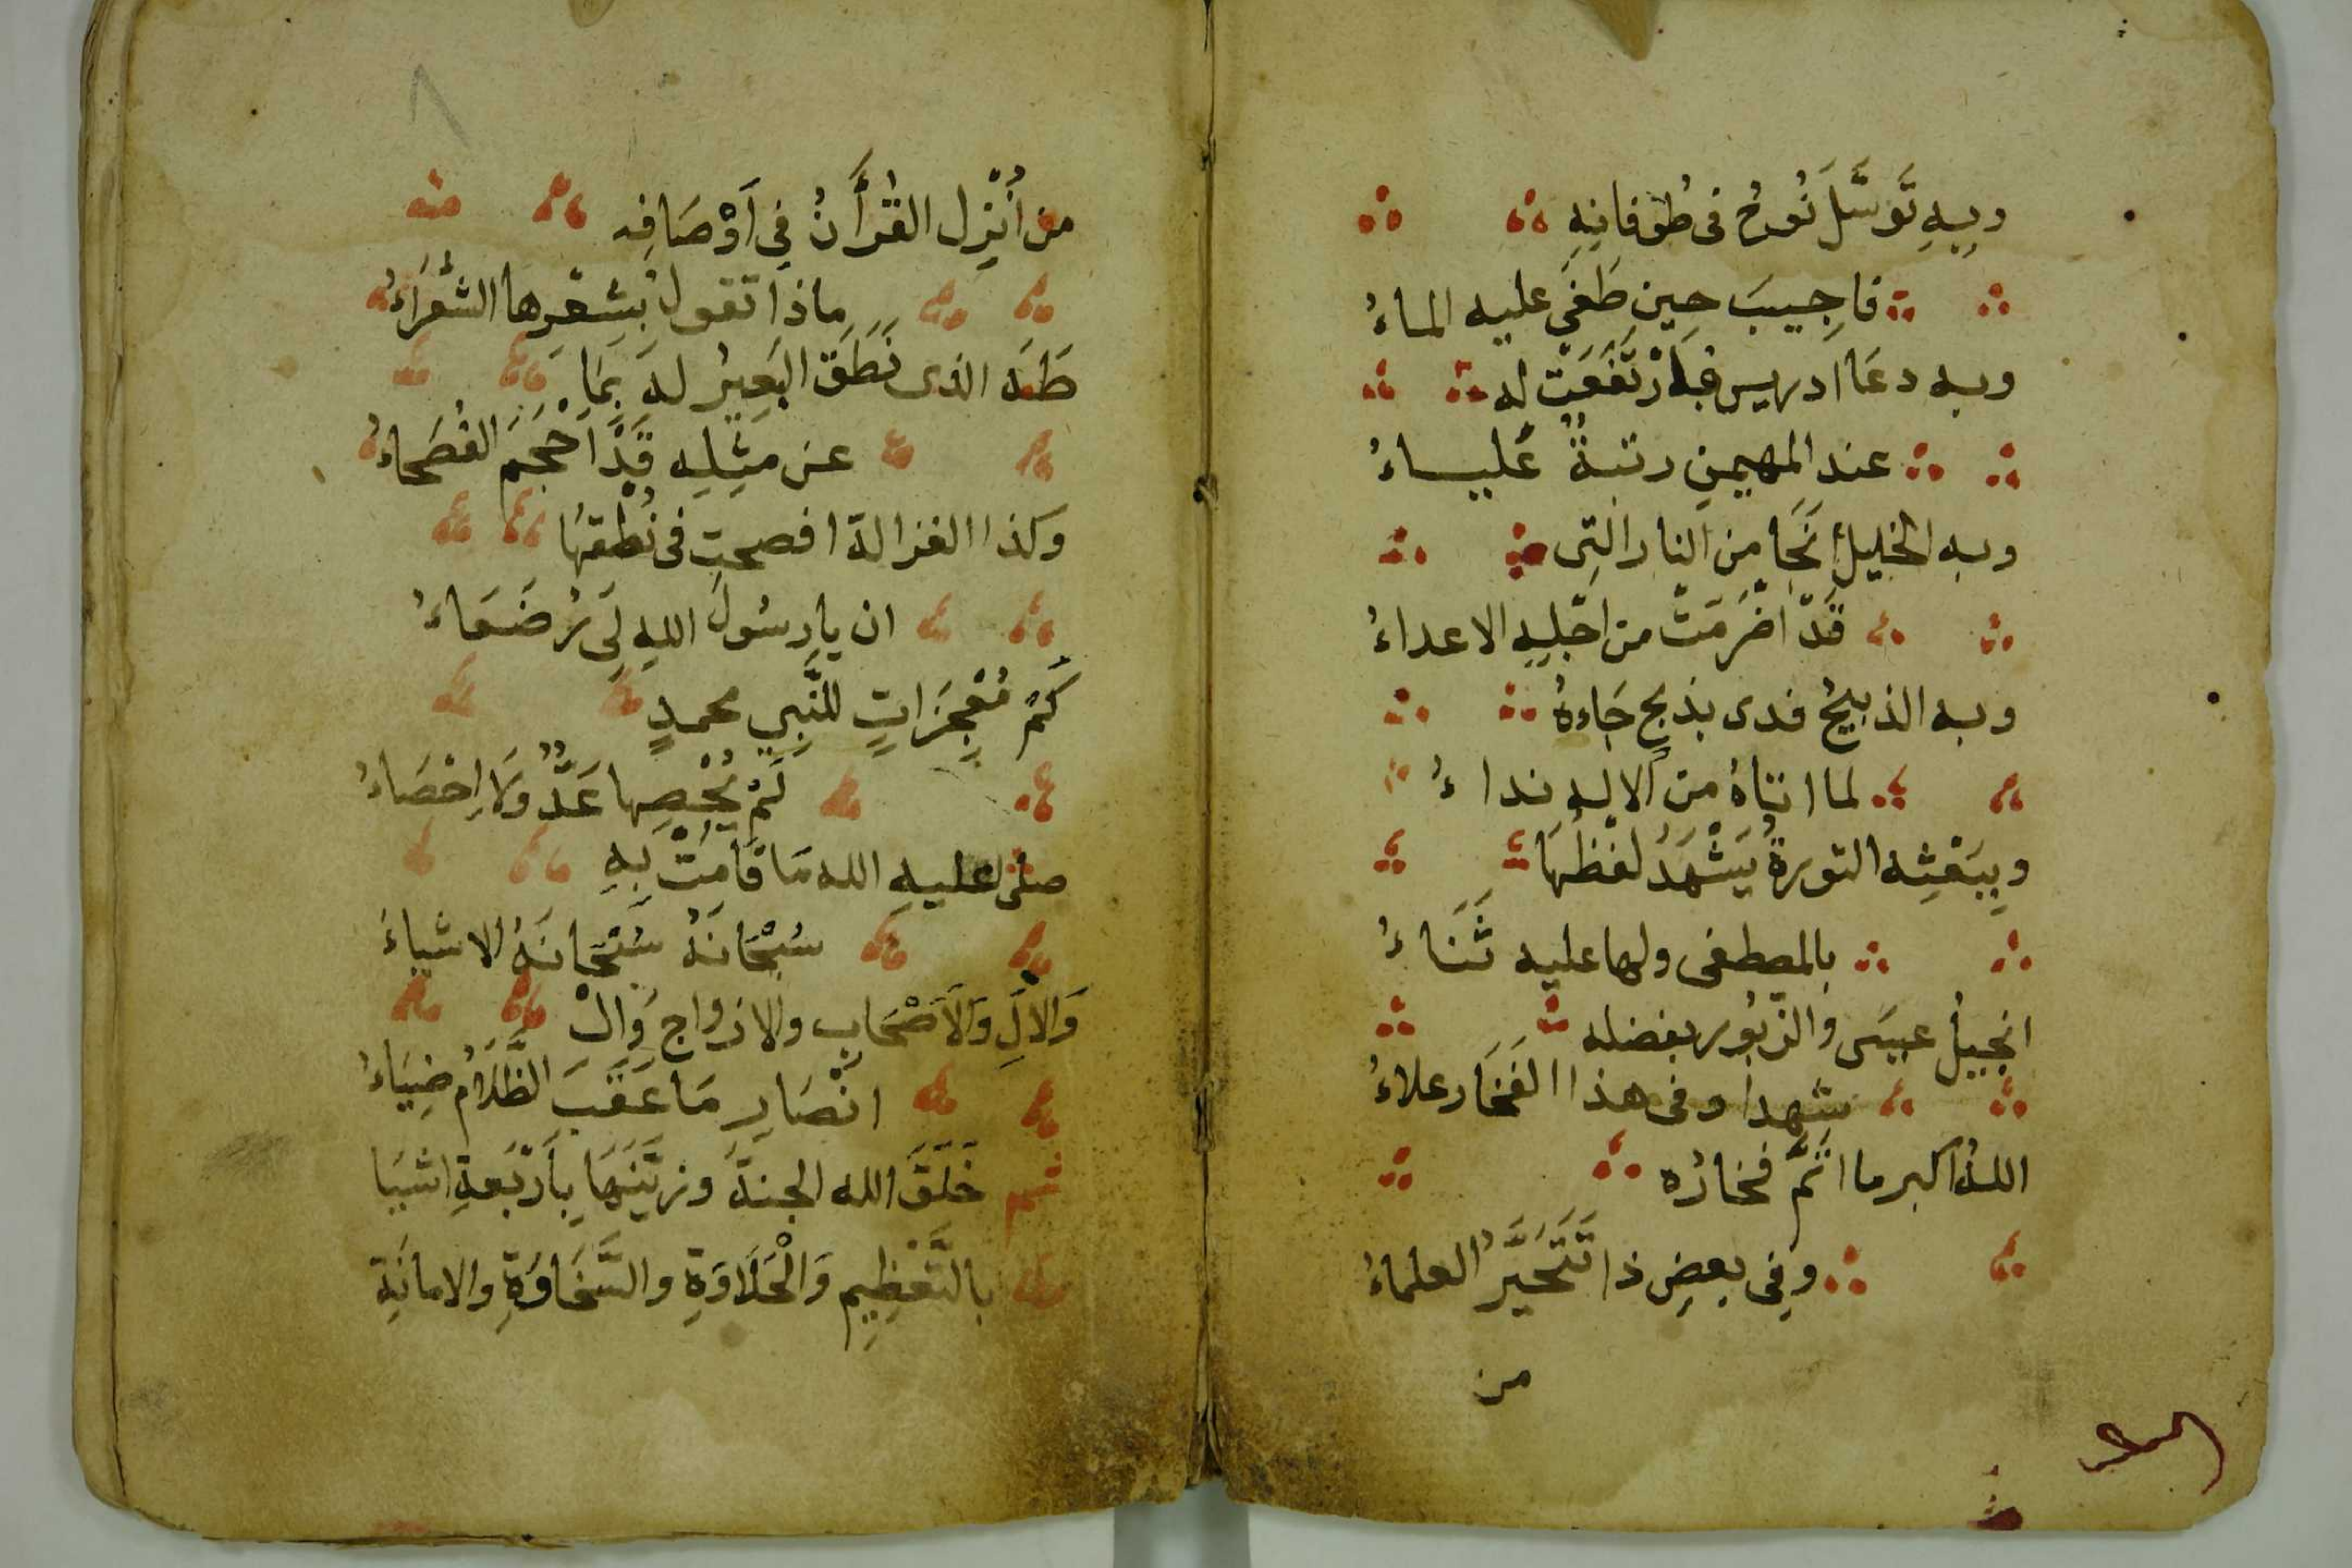 وَبِهِ تَوَسَّلَ نُوحُ فى طُوفانِهِ
فاجِيبَ حِين طَغَى عليه الماءُ
وبه دعَا ادريس فَارْتَفَعَتْ له
عند المهيمنِ رتبةٌ عُليــاءُ
وبه الخليلُ نَجَا مِن النار التِى
قَدْ اضْرَمَتْ من اجْلِهِ الاعداءُ
وبه الذبيحُ فدى بذبحٍ جَاءهُ
لما اتاهُ مِن الالهِ نداءُ
وبِبَعْثِه التورةُ يَشْهَدُ لفظُهَا
بالمصطفى ولها عليه ثَنَاءُ
انجيلُ عيسَى والزبُور بفضله
شهدا وفى هذا الفَخَار علاءُ
اللهُ اكبر ما اتَمَّ فخارُه
وفِى بعضِ ذا تَتَحَيَّرُ العلماءُ
من
٨
من أُنْزِل القُرْأَنُ فِى اَوْصَافِه
ماذا تقول بِشِعْرِها الشُّعَرَاءُ
طَهَ الذى نَطَقَ البَعِيرُ لهَ بِمَا
عن مثِلِه قَدْ اَحْجَمَ الفُصَحاءُ
وَكذا الغزالة افصحت فى نُطْقهَا
ان يا رسُولَ اللهِ لِى رُضَعَاءُ
كَمْ مُعْجِزَاتٍ للنَّبِىِ محمدٍ
لَمْ يُحْصِها عَدٌّ وَلَا اِحْصَاءُ
صلى عليهِ الله مَا قَامَتْ بِهِ
سُبْحَانَهُ سُبْحَانَهُ الاشياءُ
وَالالِ وَالاَصْحَابِ والازواجِ وَالْ
انْصَارِ مَا عَقَبَ الظَّلَامُ ضِيَاءُ
خَلَقَ الله الجنةَ وزَيَّنَهَا بِاَرْبَعةِ اشيَا
بالتَّعْظِيمِ وَالْحَلَاوَةِ والسَّخَاوَةِ والامانَةِ